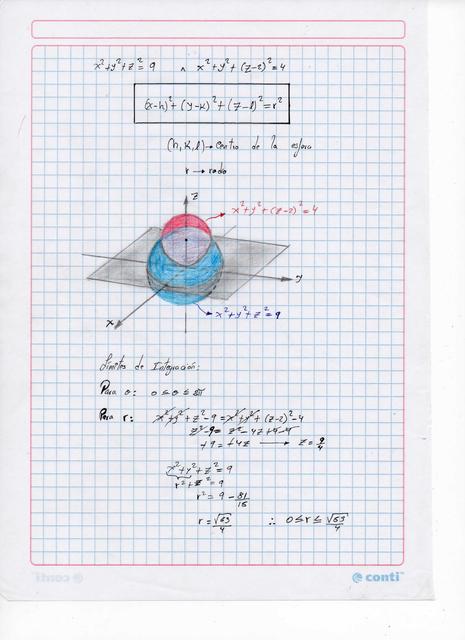 x²+y²+z²=9 ∧ x²+y²+(z-2)²=4
(x-h)²+(y-k)²+(z-l)²=r²
(h,k,l)→centro de la esfera
r → radio
z
x²+y²+(z-2)²=4
y
x
x²+y²+z²=9
Límites de Integración:
Para θ: 0≤θ≤2π
Para r: x²+y²+z²-9=x²+y²+(z-2)²-4
z²-9=z²-4z+4-4
+9=+4z → z=9/4
x²+y²+z²=9
r²+z²=9
r²=9-81/16
r=√63/4 ∴ 0≤r≤√63/4
conti
conti